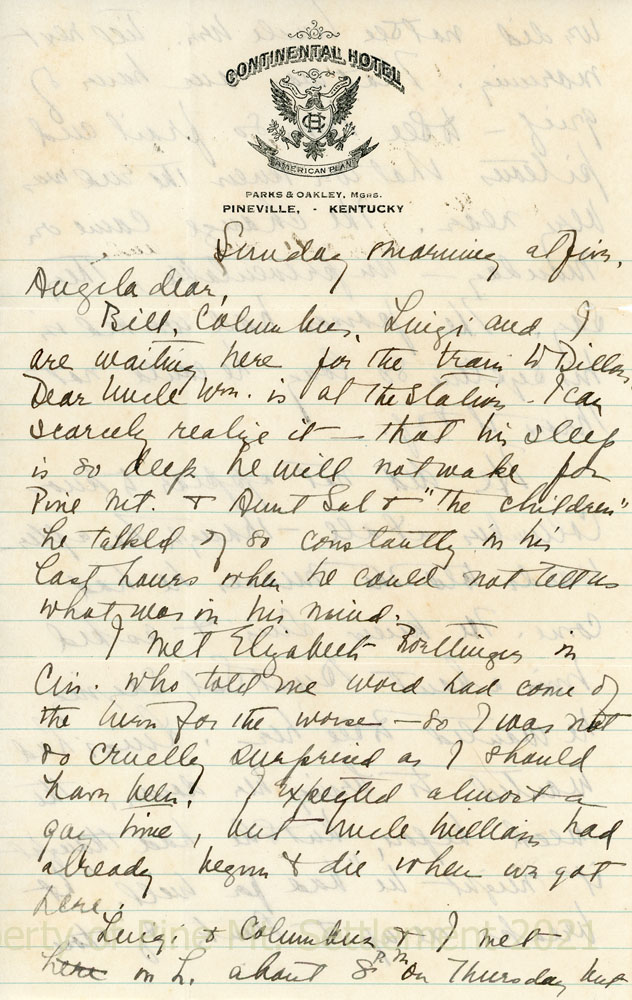 CONTINENTAL HOTEL
CH
AMERICAN PLAN
PARKS & OAKLEY, MGRS.
PINEVILLE, - KENTUCKY
Sunday morning at five.
Angela dear,
Bill, Columbus, Luigi and I
are waiting here for the train to Dillon.
Dear Uncle Wm. is at the station. I can
scarcely realize it — that his sleep
is so deep he will not wake for
Pine Mt. & Aunt Sal & "the children"
he talked of so constantly in his
last hours when he could not tell us
what was in his mind.
I met Elizabeth Roettinger in
Cin. who told me word had come of
the turn for the worse — so I was not
so cruelly surprised as I should
have been. I expected almost a
gay time, but Uncle William had
already begun to die when we got
here.
Luigi & Columbus & I met
here in L. about 8 P.M. on Thursday but
Property of Pine Mt. Settlement 2021